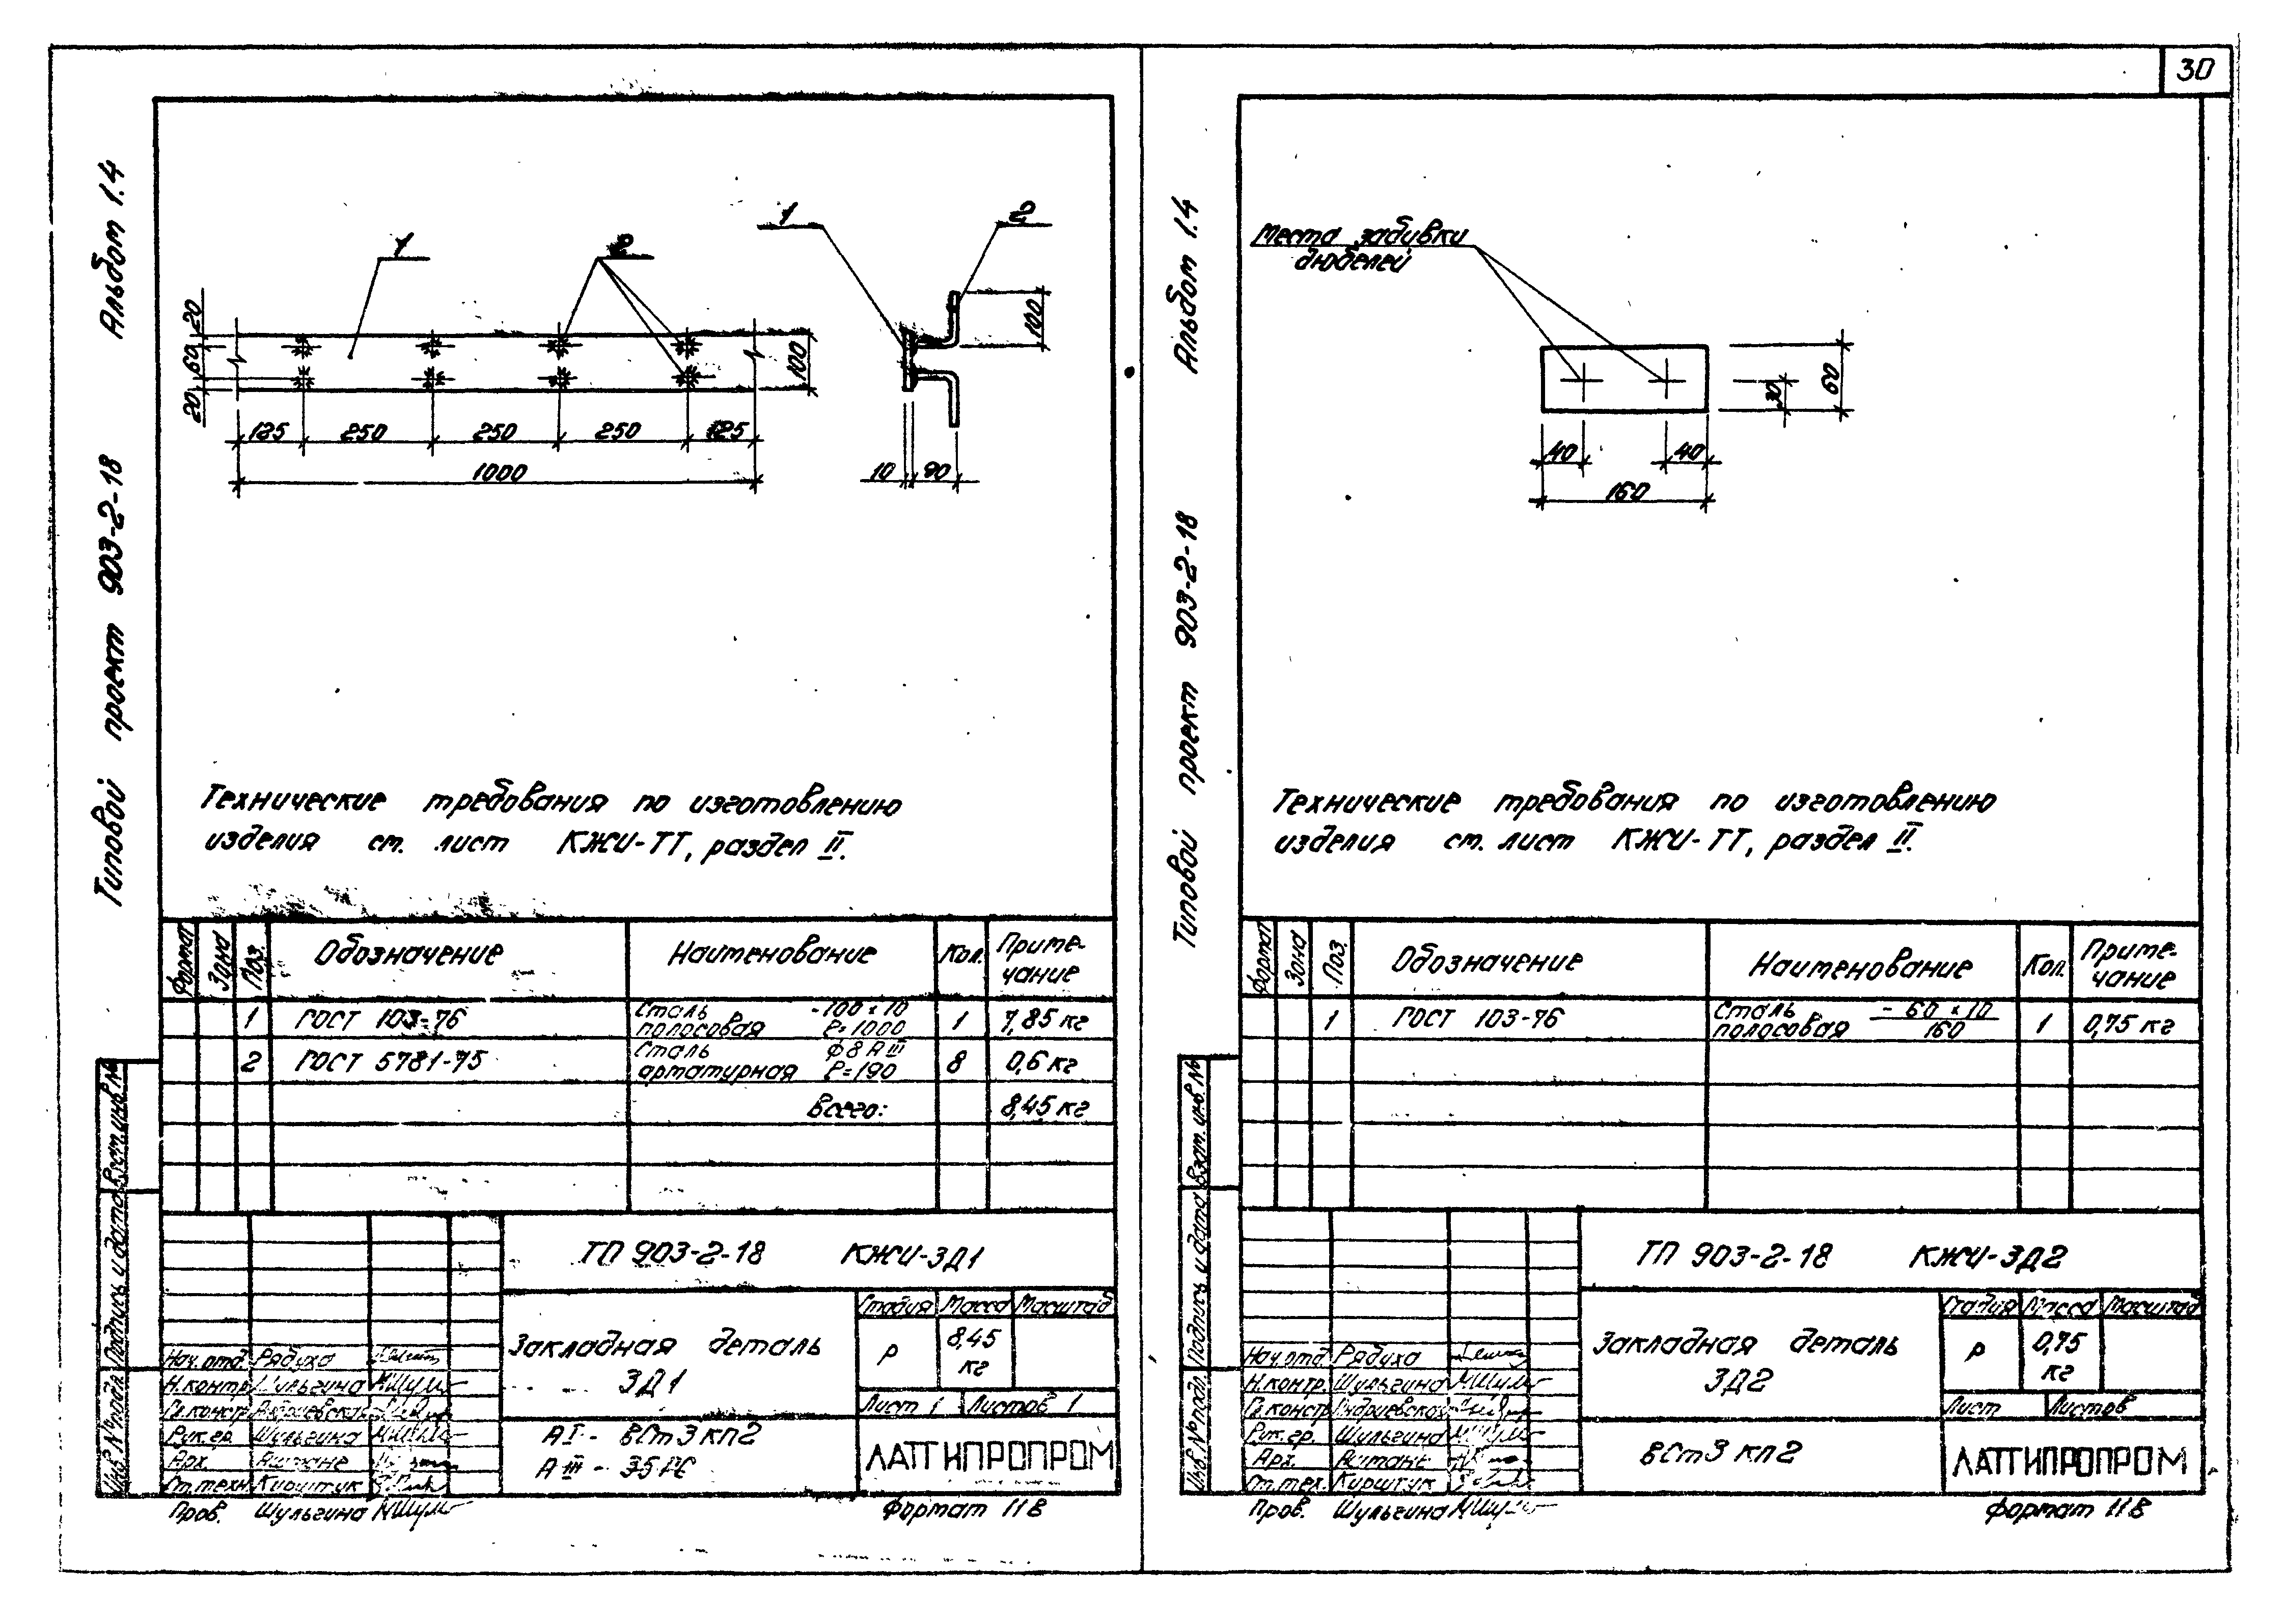 30
Типовой проект 903-2-18 Альбом 1.4
1
2
1
2
20
60
20
100
100
125 250 250 250 125
1000
10 90
Технические требования по изготовлению
изделия см. лист КЖИ-ТТ, раздел II.
Формат Зона Поз. Обозначение Наименование Кол. Приме-
чание
1 ГОСТ 103-76 Сталь полосовая -100×10 ℓ=1000 1 7,85 кг
2 ГОСТ 5781-75 Сталь арматурная ф8АIII ℓ=190 8 0,6 кг
Всего: 8,45 кг
Взам. инв. №
Подпись и дата
Инв. № подл.
ТП 903-2-18 КЖИ-ЗД1
Закладная деталь
ЗД1
Стадия Масса Масштаб
Р 8,45
кг
Лист 1 Листов 1
АI - ВСт3кп2
АIII - 35ГС
ЛАТГИПРОПРОМ
Нач. отд. Рябуха
Н.контр. Шульгина
Гл.констр. Андриевская
Рук.гр. Шульгина
Арх.
Ст.техн. Кирштук
Пров. Шульгина
Формат 11В
Типовой проект 903-2-18 Альбом 1.4
Места забивки
дюбелей
60
30
40 40
160
Технические требования по изготовлению
изделия см. лист КЖИ-ТТ, раздел II.
Формат Зона Поз. Обозначение Наименование Кол. Приме-
чание
1 ГОСТ 103-76 Сталь полосовая - 60×10 / 160 1 0,75 кг
Взам. инв. №
Подпись и дата
Инв. № подл.
ТП 903-2-18 КЖИ-ЗД2
Закладная деталь
ЗД2
Стадия Масса Масштаб
Р 0,75
кг
Лист Листов
ВСт3 кп2
ЛАТГИПРОПРОМ
Нач. отд. Рябуха
Н.контр. Шульгина
Гл.констр. Андриевская
Рук. гр. Шульгина
Арх.
Ст.тех. Кирштук
Пров. Шульгина
Формат 11В